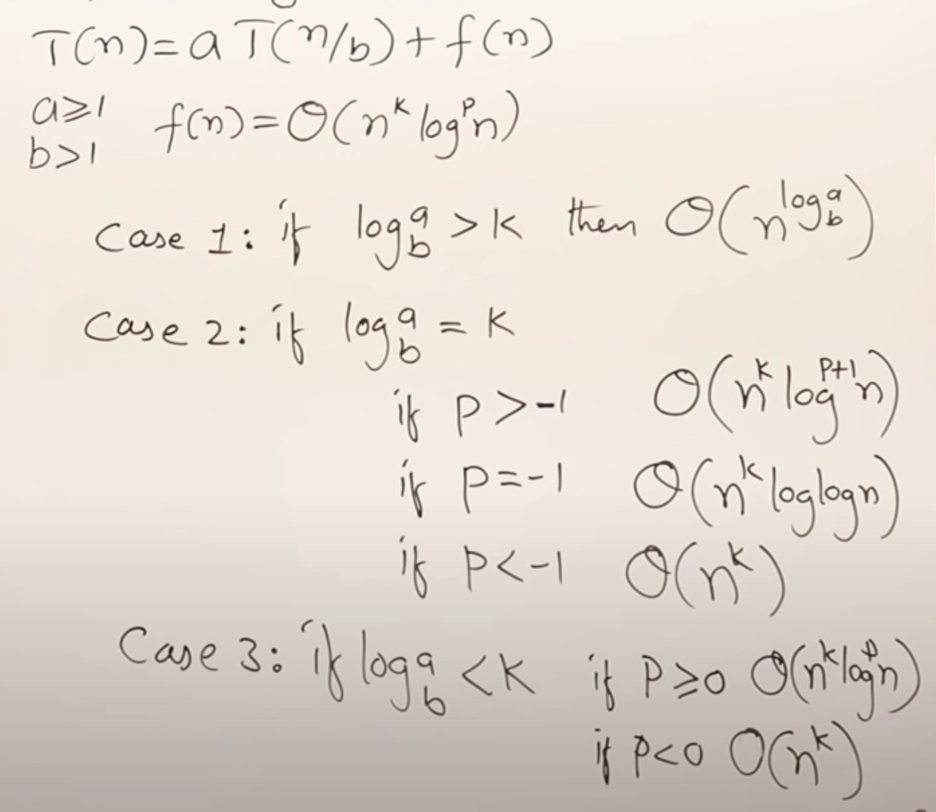 T(n)=aT(n/b)+f(n)
a≥1
b>1
f(n)=O(n^k log^p n)
Case 1: if log_b^a >k then O(n^(log_b^a))
Case 2: if log_b^a = k
if p>-1 O(n^k log^(p+1) n)
if p=-1 O(n^k loglogn)
if p<-1 O(n^k)
Case 3: if log_b^a <k if p≥0 O(n^k log^p n)
if p<0 O(n^k)